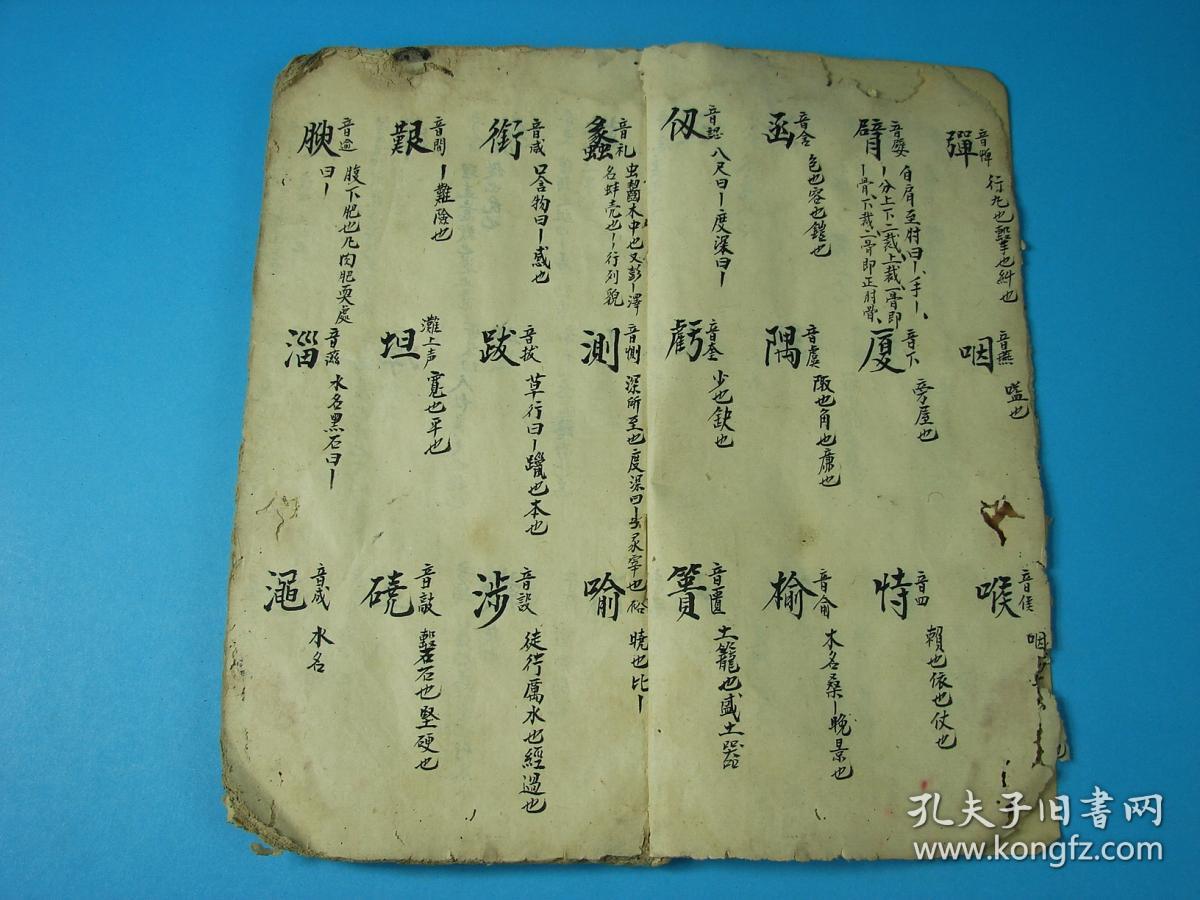 彈 音憚 行丸也擊也糾也
咽 音燕 嗑也
喉 音侯 咽
臂 自肩至肘曰丨手丨
丨分上下二截上截一骨即
丨骨下截二骨即正肘骨
厦 音下 旁屋也
恃 音四 賴也依也仗也
函 音含 包也容也鎧也
隅 音虞 陬也角也廉也
榆 音俞 木名桑丨晚景也
仞 音認 八尺曰丨度深曰丨
虧 音奎 少也缺也
簣 音匱 土籠也盛土器
蠡 音礼 虫齧木中也又彭丨澤
名蚌壳也丨行列貌
測 音惻 深所至也度深曰丨
喻 音裕 曉也比丨
銜 音咸 口含物曰丨感也
跋 音拔 草行曰丨躐也本也
涉 音設 徒行厲水也經過也
艱 音間 丨難險也
坦 灘上声 寬也平也
磽 音敲 磐石也堅硬也
腴 音逾 腹下肥也凡肉肥耎處
曰丨
淄 音 水名黑石曰丨
澠 音成 水名
孔夫子旧书网
www.kongfz.com